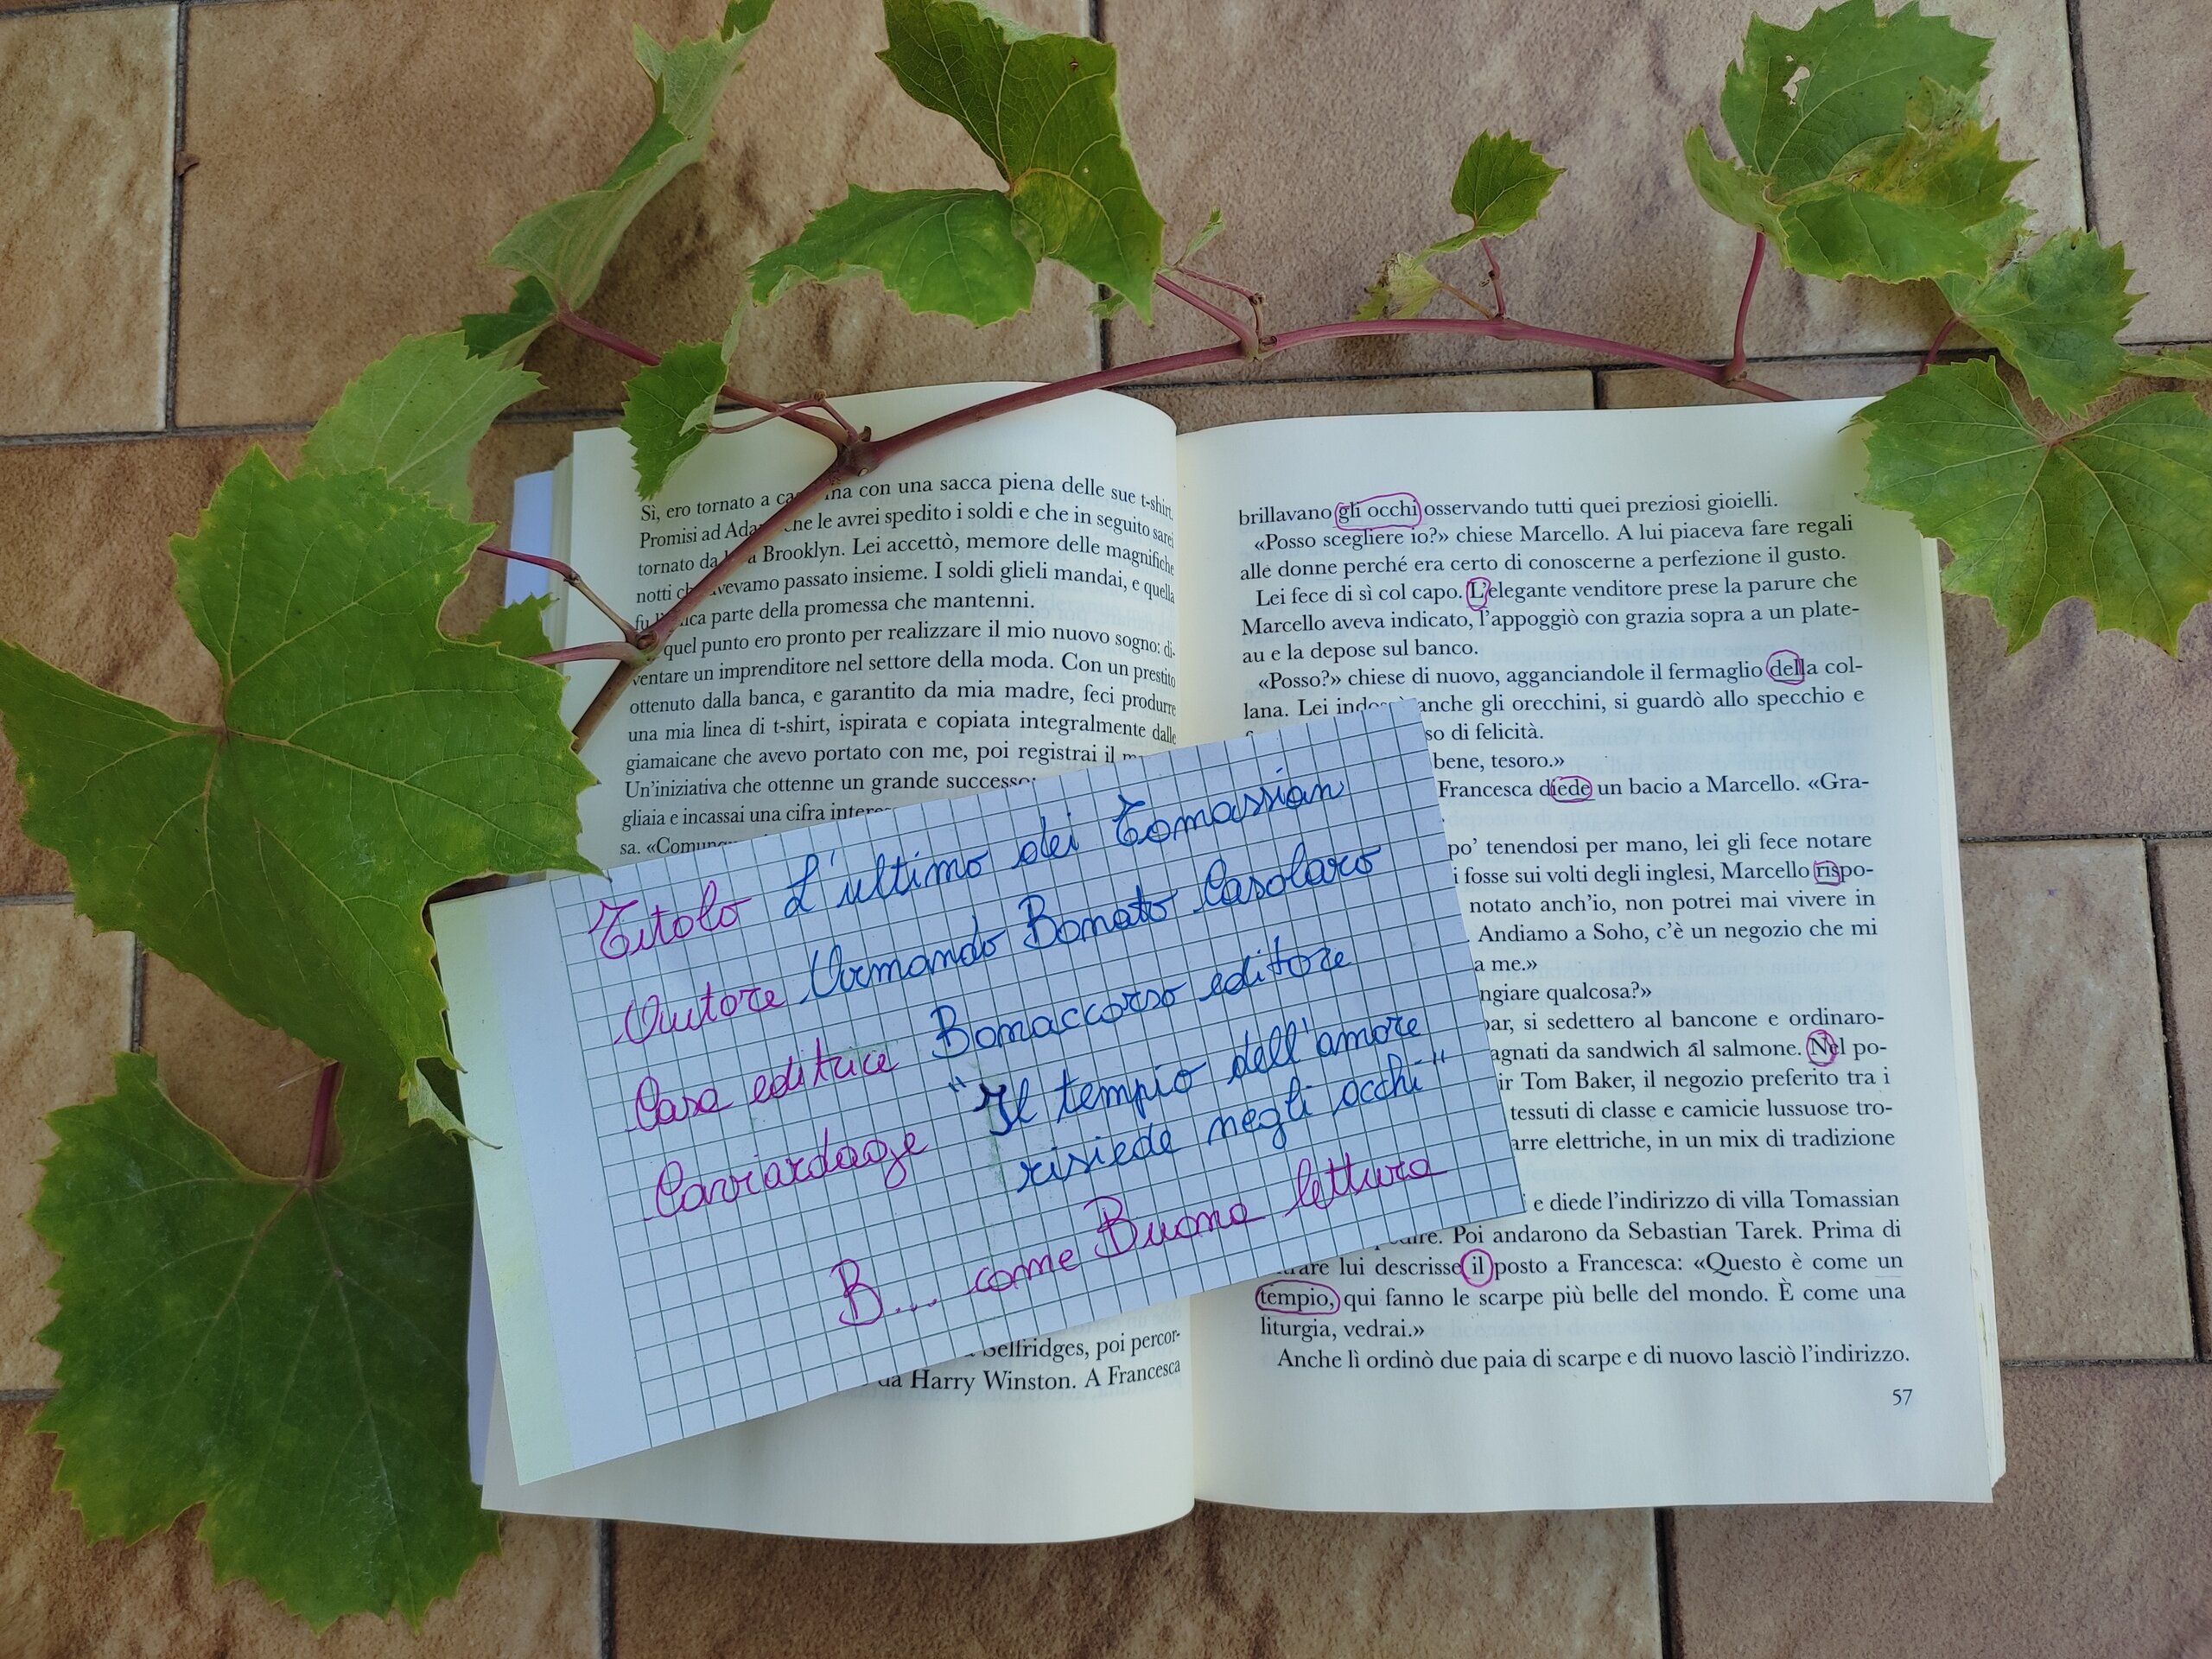 Sì, ero tornato a ca na con una sacca piena delle sue t-shirt.
Promisi ad Ada che le avrei spedito i soldi e che in seguito sarei
tornato da a Brooklyn. Lei accettò, memore delle magnifiche
notti ch avevamo passato insieme. I soldi glieli mandai, e quella
fu l' ica parte della promessa che mantenni.
quel punto ero pronto per realizzare il mio nuovo sogno: di-
ventare un imprenditore nel settore della moda. Con un prestito
ottenuto dalla banca, e garantito da mia madre, feci produrre
una mia linea di t-shirt, ispirata e copiata integralmente dalle
giamaicane che avevo portato con me, poi registrai il m
Un'iniziativa che ottenne un grande successo:
gliaia e incassai una cifra interes
sa. «Comunq
Titolo L'ultimo dei Tomassian
Autore Armando Bonato Casolaro
Casa editrice Bonaccorso editore
Caviardage "Il tempio dell'amore
risiede negli occhi"
B... come Buona lettura
Selfridges, poi percor-
da Harry Winston. A Francesca
brillavano gli occhi osservando tutti quei preziosi gioielli.
«Posso scegliere io?» chiese Marcello. A lui piaceva fare regali
alle donne perché era certo di conoscerne a perfezione il gusto.
Lei fece di sì col capo. L'elegante venditore prese la parure che
Marcello aveva indicato, l'appoggiò con grazia sopra a un plate-
au e la depose sul banco.
«Posso?» chiese di nuovo, agganciandole il fermaglio della col-
lana. Lei indossò anche gli orecchini, si guardò allo specchio e
so di felicità.
bene, tesoro.»
Francesca diede un bacio a Marcello. «Gra-
po' tenendosi per mano, lei gli fece notare
i fosse sui volti degli inglesi, Marcello rispo-
notato anch'io, non potrei mai vivere in
. Andiamo a Soho, c'è un negozio che mi
a me.»
ngiare qualcosa?»
bar, si sedettero al bancone e ordinaro-
agnati da sandwich al salmone. Nel po-
ir Tom Baker, il negozio preferito tra i
tessuti di classe e camicie lussuose tro-
arre elettriche, in un mix di tradizione
e diede l'indirizzo di villa Tomassian
edire. Poi andarono da Sebastian Tarek. Prima di
trare lui descrisse il posto a Francesca: «Questo è come un
tempio, qui fanno le scarpe più belle del mondo. È come una
liturgia, vedrai.»
Anche lì ordinò due paia di scarpe e di nuovo lasciò l'indirizzo.
57